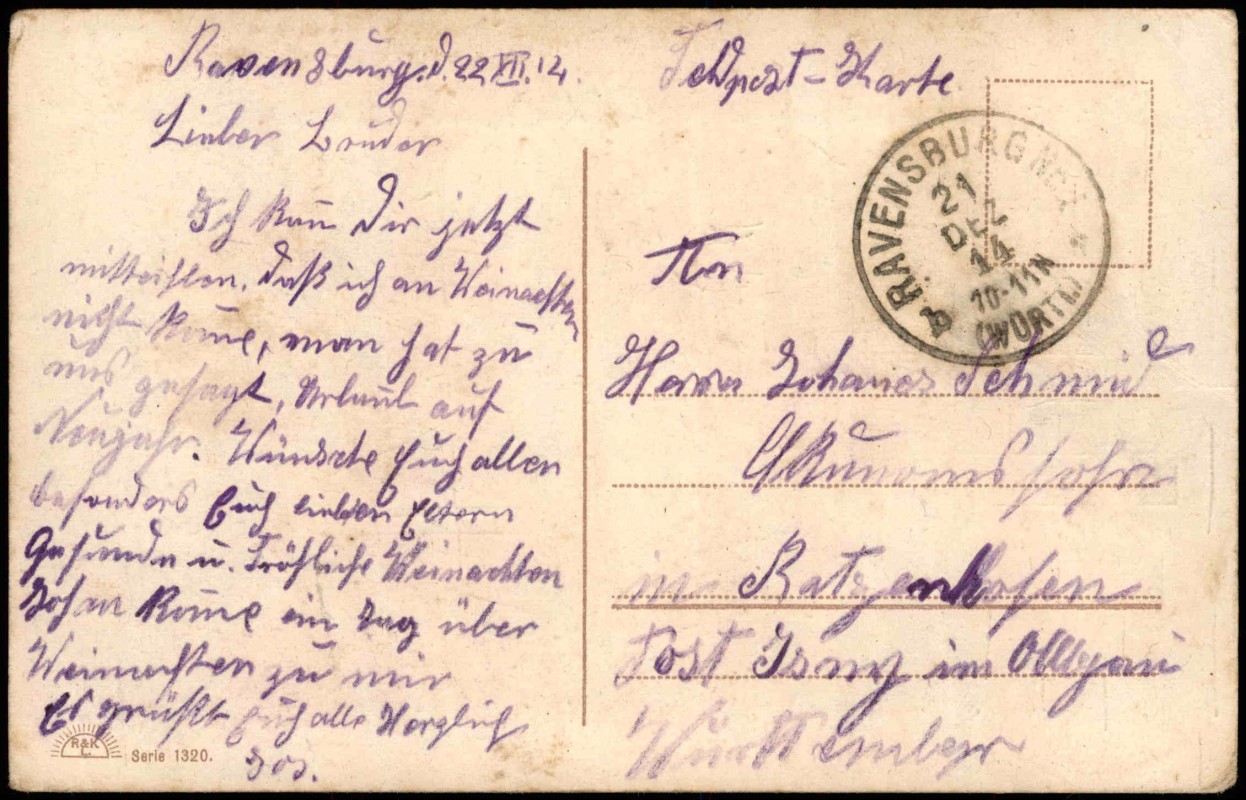 Ravensburg. d. 22 XII. 14.
Lieber Bruder
Ich kan̄ Dir jetzt
mitteihlen. daß ich an Weinachten
nicht kom̄e, man hat zu
uns gesagt, Urlaub auf
Neujahr. Wünsche Euch allen
besonders Euch lieben Eltern
Gesunde u. Fröhliche Weinachten
Johan kom̄e ein Tag über
Weinachten zu mir
Es grüßt Euch alle Herzlich
Jos.
R&K
L.
Serie 1320.
Feldpost-Karte
RAVENSBURG
21
DEZ
14
10-11N
(WÜRTT.)
An
Herrn Johanes Schmid
Ökunomssohn
in Ratzenhofen
Post Isny im Allgäu
Württemberg